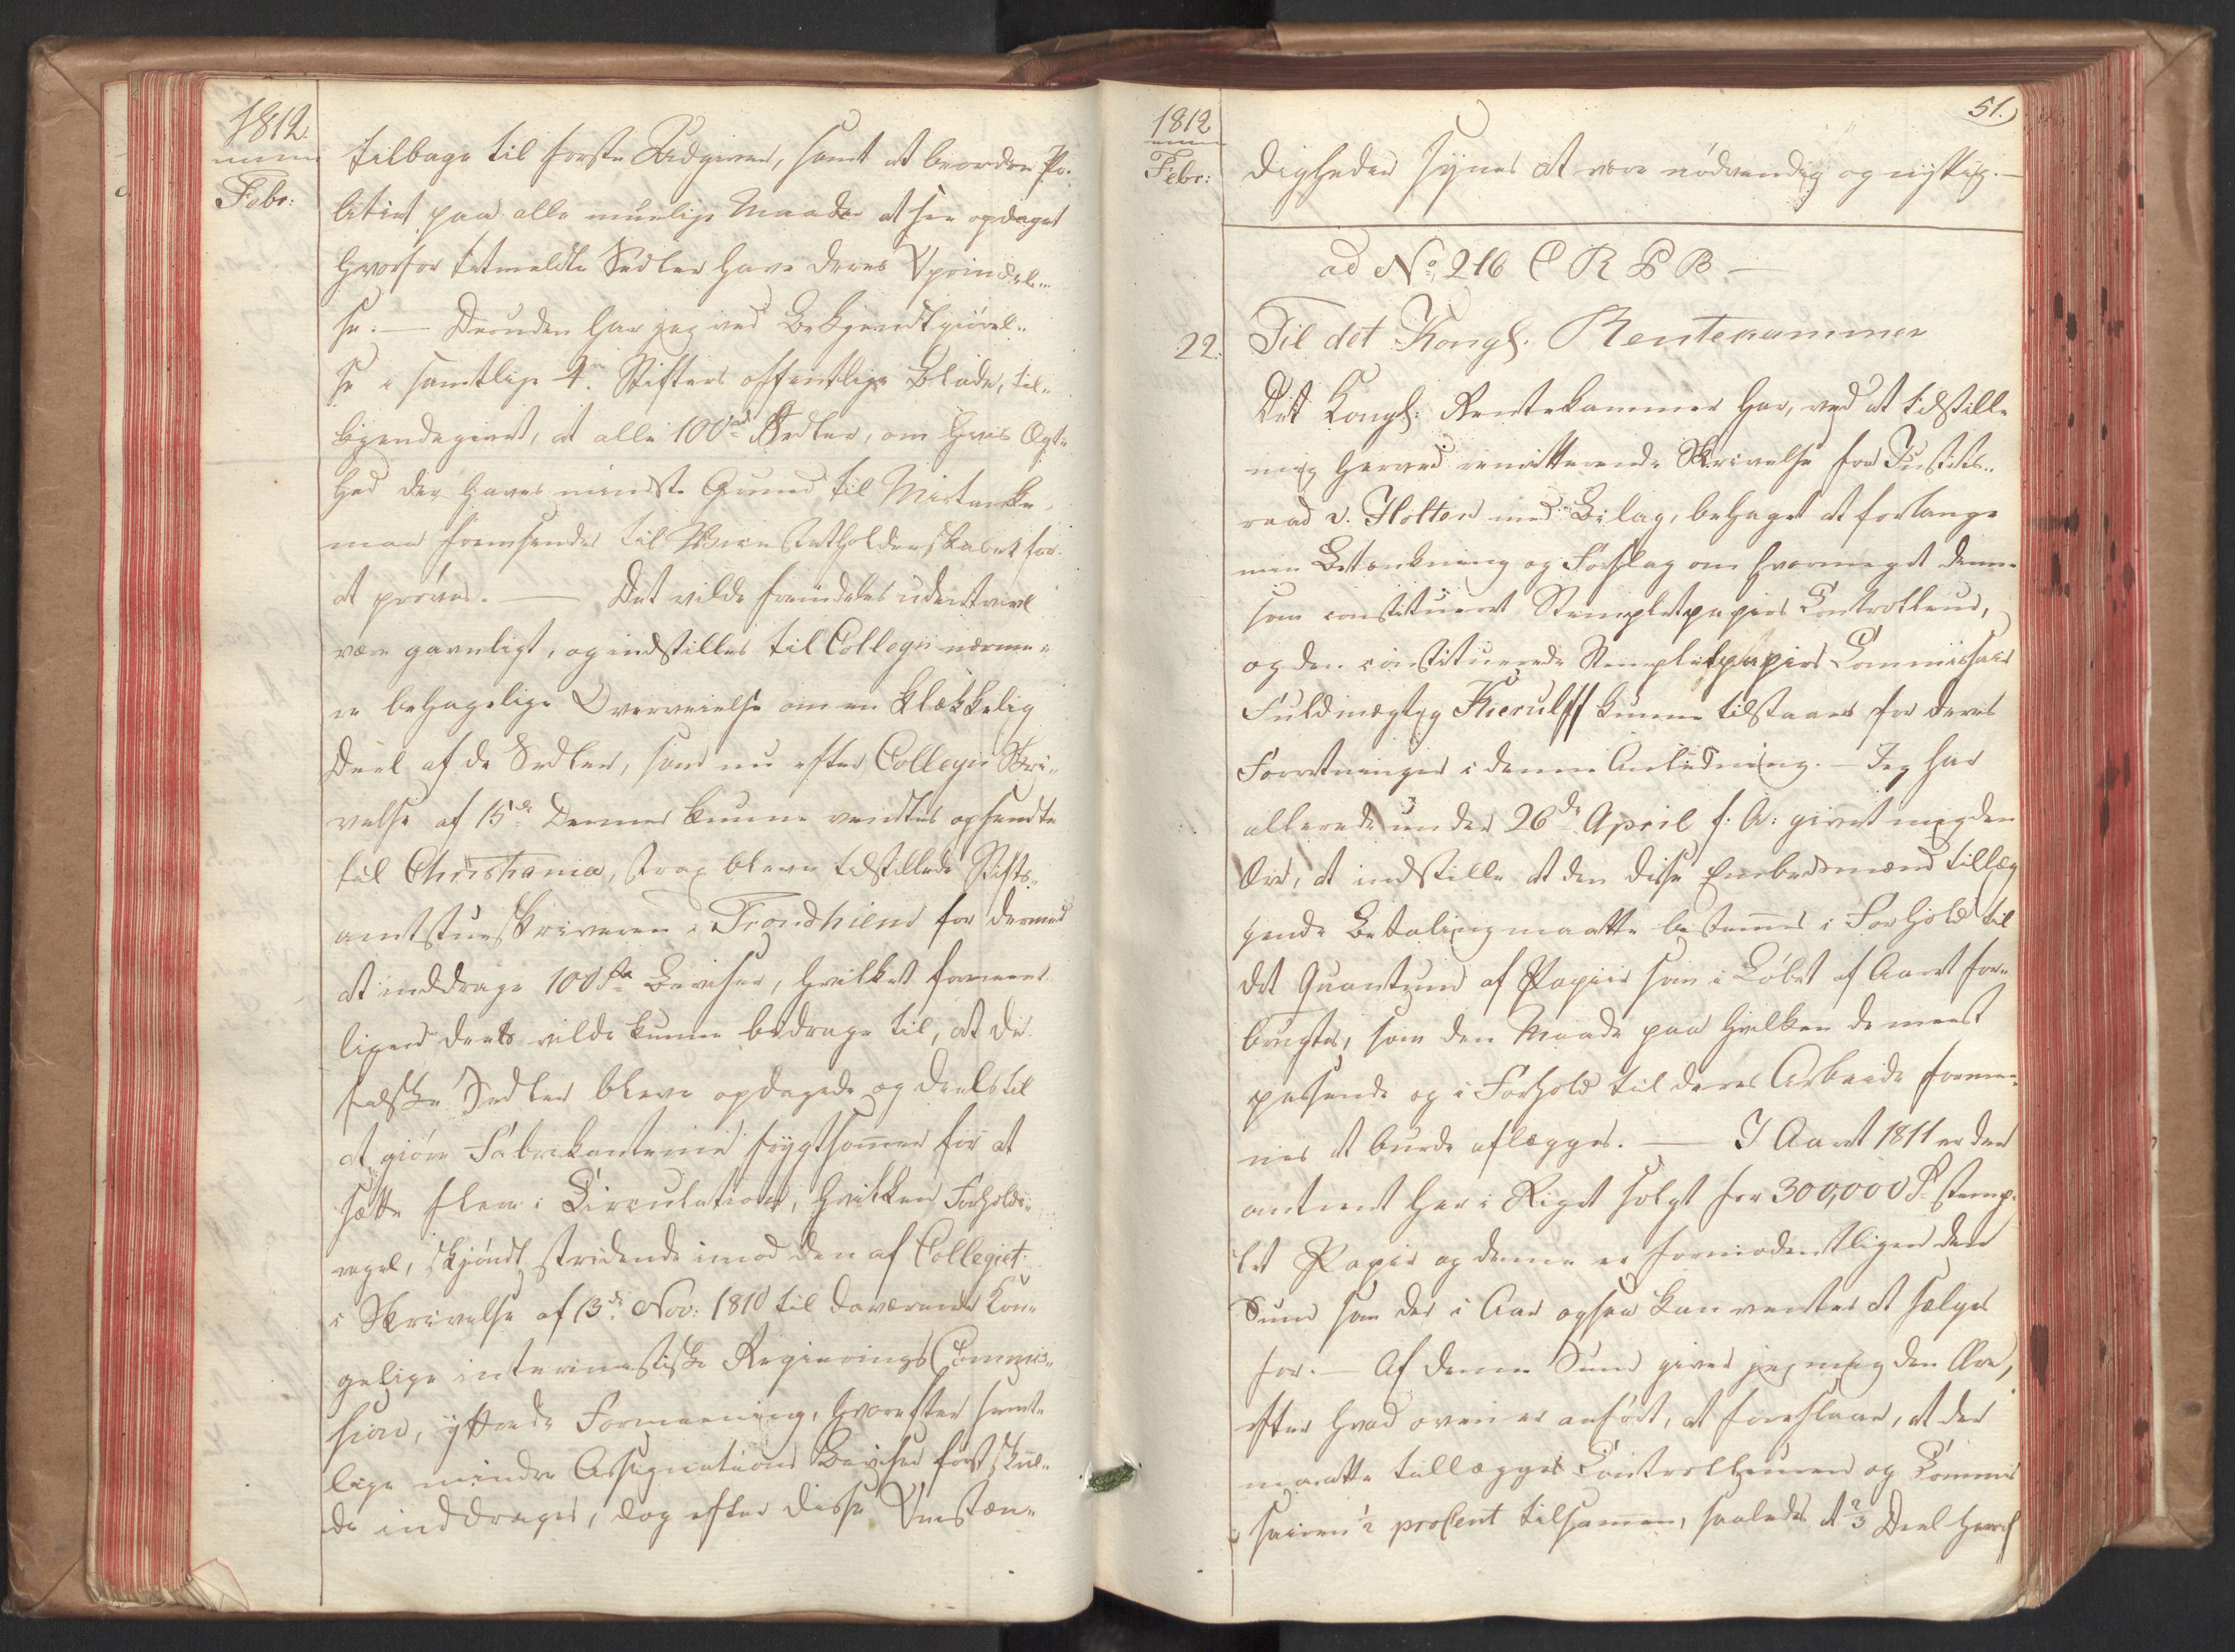 1812
Febr:
tilbage til første Udgiver, samt at beordre Po-
litiet paa alle muelige Maader at see opdaget
hvorfor bemeldte Sedler have deres Oprindel-
se. — Desuden har jeg ved Bekjendtgiørel-
se i samtlige 4re Stifters offentlige Blade, til-
kjendegivet, at alle 100rd Sedler, om hvis Ægt-
hed der haves mindste Grund til Mistanke,
maa fremsendes til Vice Statholderskabet for
at prøves. — Det vilde fremdeles udentvivl
være gavnligt, og indstilles til Collegii nærme-
re behagelige Overveielse om en klækkelig
Deel af de Sedler, som nu efter Collegii Skri-
velse af 15de Dennes kunne ventes opsendte
til Christiania, strax bleve tilstillede Stifts-
amtstueskriveren i Trondhiem for dermed
at inddrage 100rd Beviser, hvilket formeent-
ligen deels vilde kunne bidrage til, at de
falske Sedler bleve opdagede og deels til
at giøre Fabrikanterne frygtsommere for at
sætte flere i Circulation, hvilken Forholds-
regel, skjøndt stridende imod den af Collegiet
i Skrivelse af 13de Nov: 1810 til daværende Kon-
gelige interimistiske Regierings Commis-
sion, yttrede Formeening, hvorefter samt-
lige mindre Assignations Beviser først skul-
de inddrages, dog efter disse Omstæn-
51.
1812
Febr:
digheder synes at være nødvendig og nyttig. —
ad No 216 C R P B —
22.
Til det Kongl. Rentekammer
Det Kongl: Rentekammer har, ved at tilstille
mig herved remitterende Skrivelse fra Justits-
raad v. Holten med Bilag, behaget at forlange
min Betænkning og Forslag om hvormeget denne
som constitueret Stempletpapirs Controlleur,
og den constituerede Stempletpapirs Commissair
Fuldmægtig Kierulff kunne tilstaaes for deres
Forretninger i denne Anledning. — Jeg har
allerede under 26de April f. A: givet mig den
Ære, at indstille at den disse Embedsmænd tillæg
gende Betaling maatte bestemmes i Forhold til
det Quantum af Papir som i Løbet af Aaret for-
brugtes, som den Maade paa hvilken de meest
passende og i Forhold til deres Arbeide formee-
nes at burde aflægges. — I Aaret 1811 er der
omtrent her i Riget solgt for 300,000 Rd stemp-
let Papir og denne er formodentligen den
Sum som der i Aar ogsaa kan ventes at sælges
for. — Af denne Sum giver jeg mig den Ære,
efter hvad oven er anført, at foreslaae, at der
maatte tillægges Controlleuren og Commis
sairen ½ proCent tilsammen, saaledes at ⅔ Deel heraf